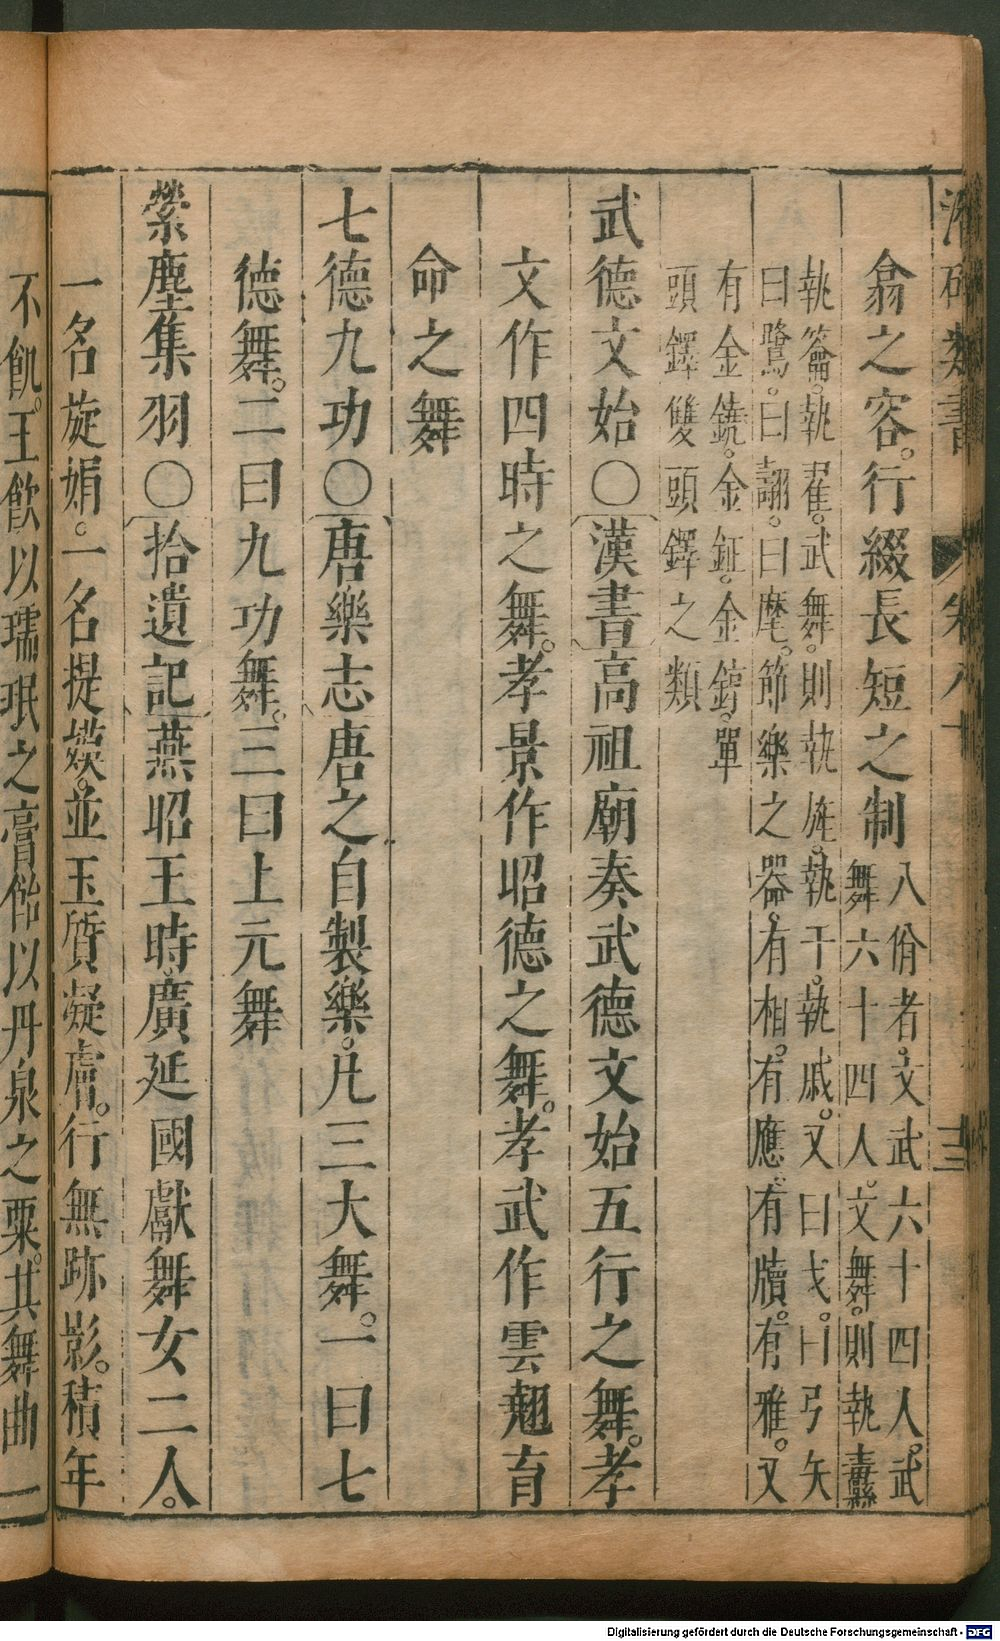 潛確類書 卷八十 三
翕之容。行綴長短之制
八佾者。文武六十四人。武
舞六十四人。文舞。則執纛
執籥。執翟。武舞。則執旌。執干。執戚。又曰戈。曰弓矢
曰鷺。曰翿。曰麾。節樂之器。有相。有應。有牘。有雅。又
有金鐃。金鉦。金錞。單
頭鐸雙頭鐸之類
武德文始○漢書高祖廟奏武德文始五行之舞。孝
文作四時之舞。孝景作昭德之舞。孝武作雲翹育
命之舞
七德九功○唐樂志唐之自製樂。凡三大舞。一曰七
德舞。二曰九功舞。三曰上元舞
縈塵集羽○拾遺記燕昭王時。廣延國獻舞女二人。
一名旋娟。一名提嫫。並玉質凝膚。行無跡影。積年
不飢。王飲以瓀珉之膏飴以丹泉之粟。其舞曲一
Digitalisierung gefördert durch die Deutsche Forschungsgemeinschaft - DFG